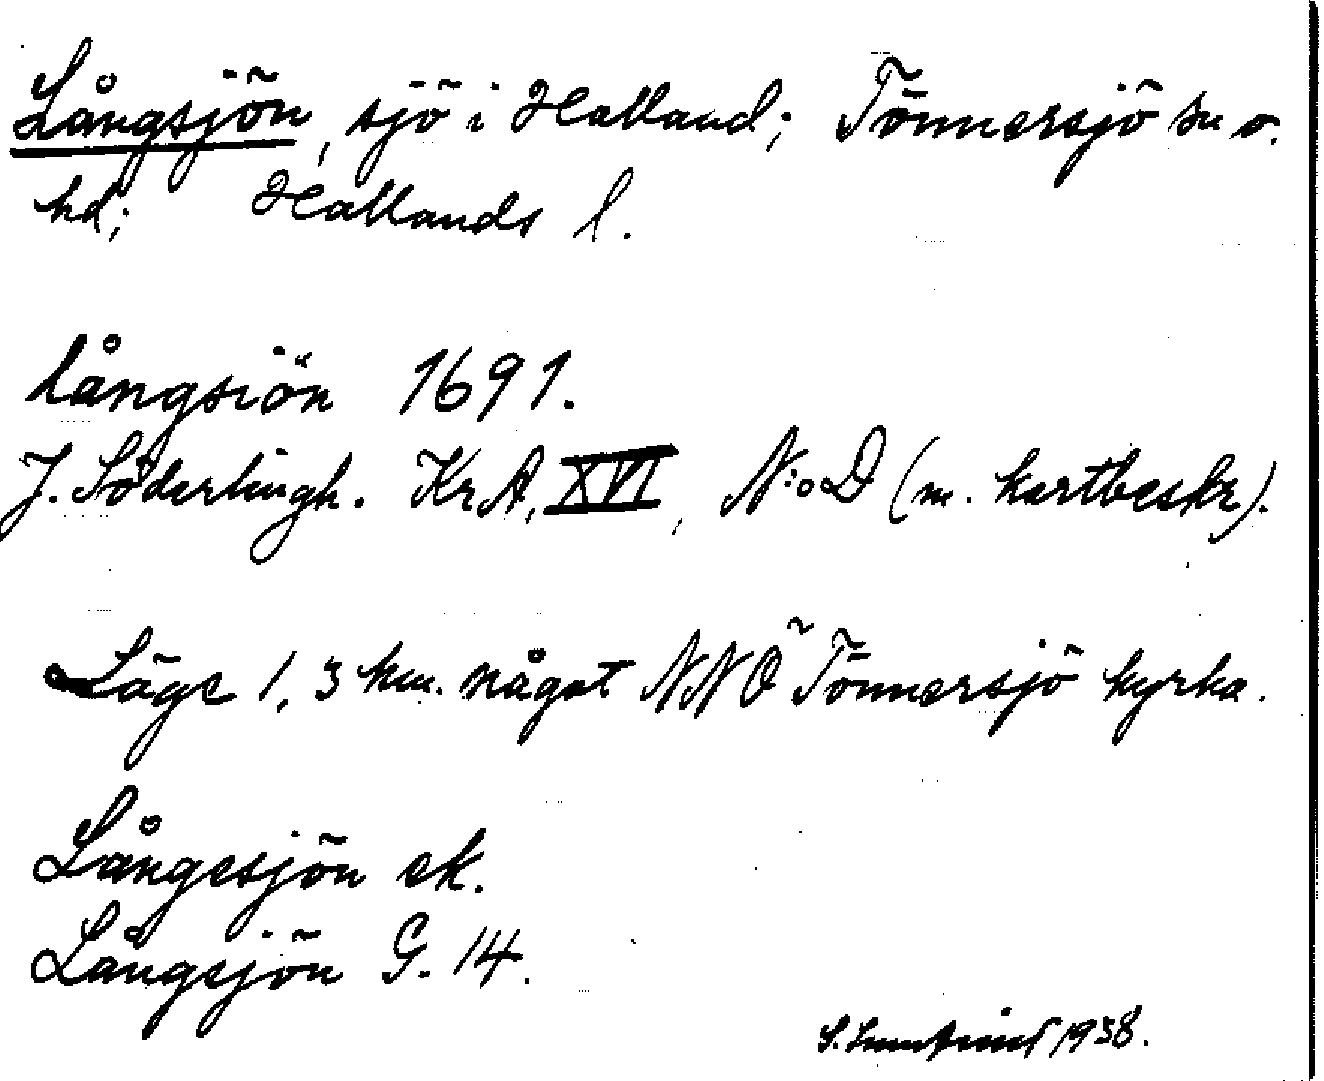 Långsjön, sjö i Halland; Tönnersjö sn o.
hd; Hallands l.
Långsiön 1691.
J. Söderlingh. KrA, XVI, N:o D (m. kartbeskr).
Läge 1,3 km. något NNÖ Tönnersjö kyrka.
Långesjön ek.
Långsjön G. 14.
S. 1938.